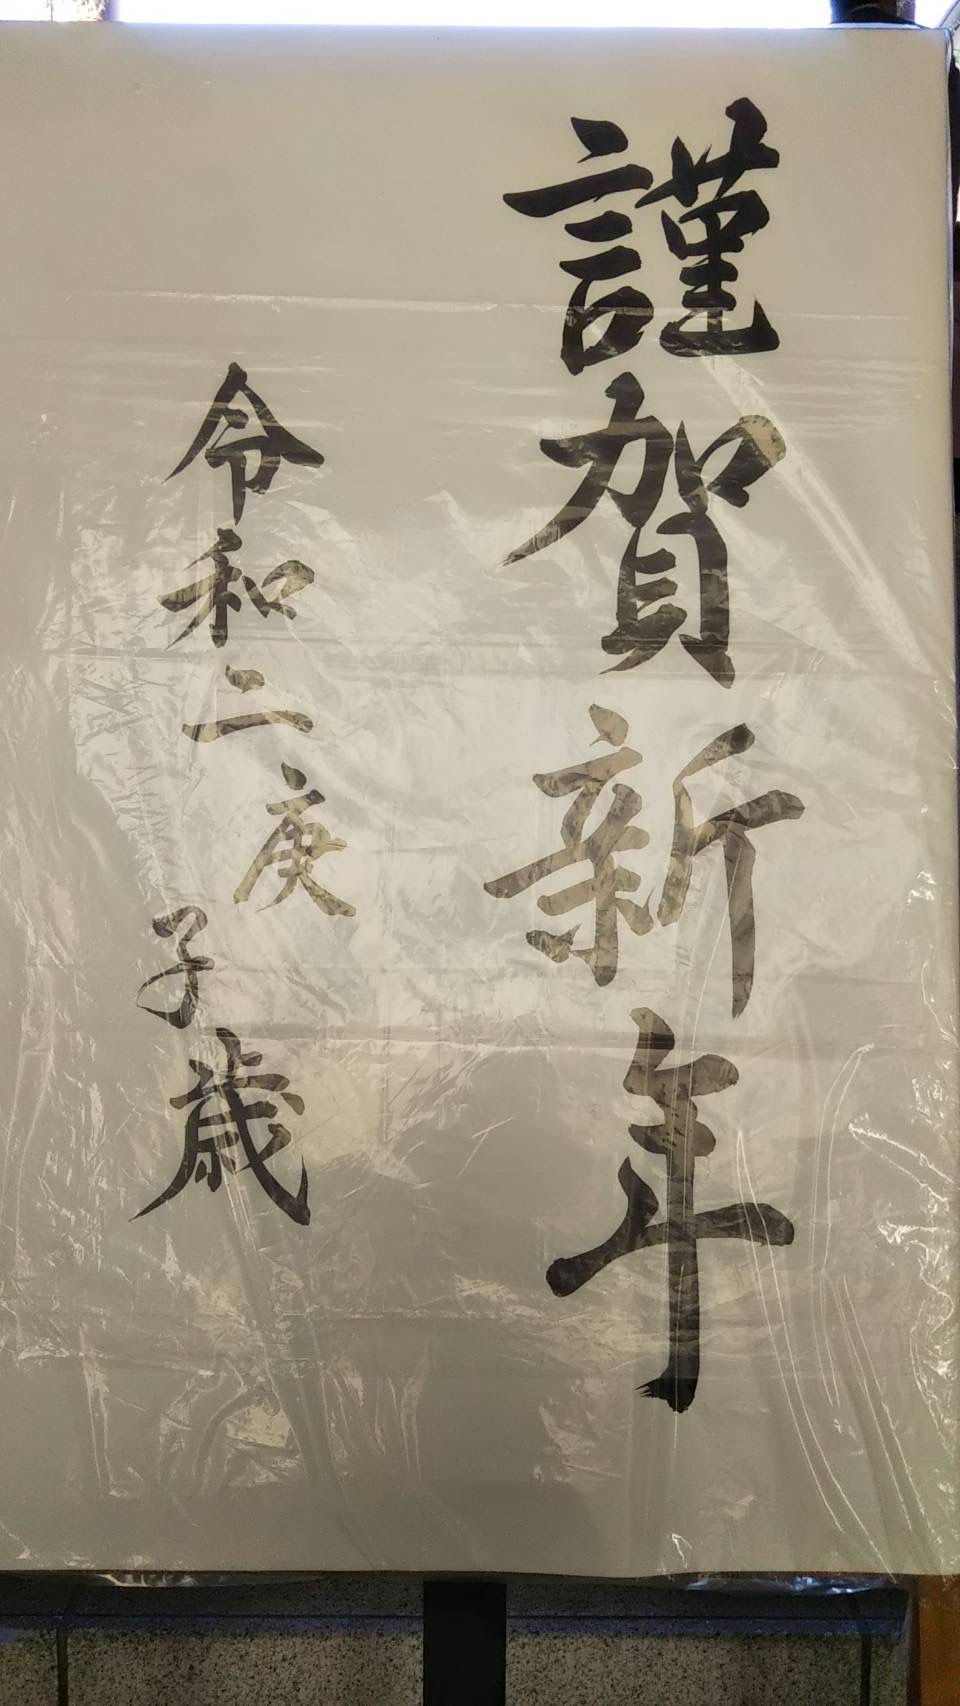 謹賀新年
令和二庚子歳